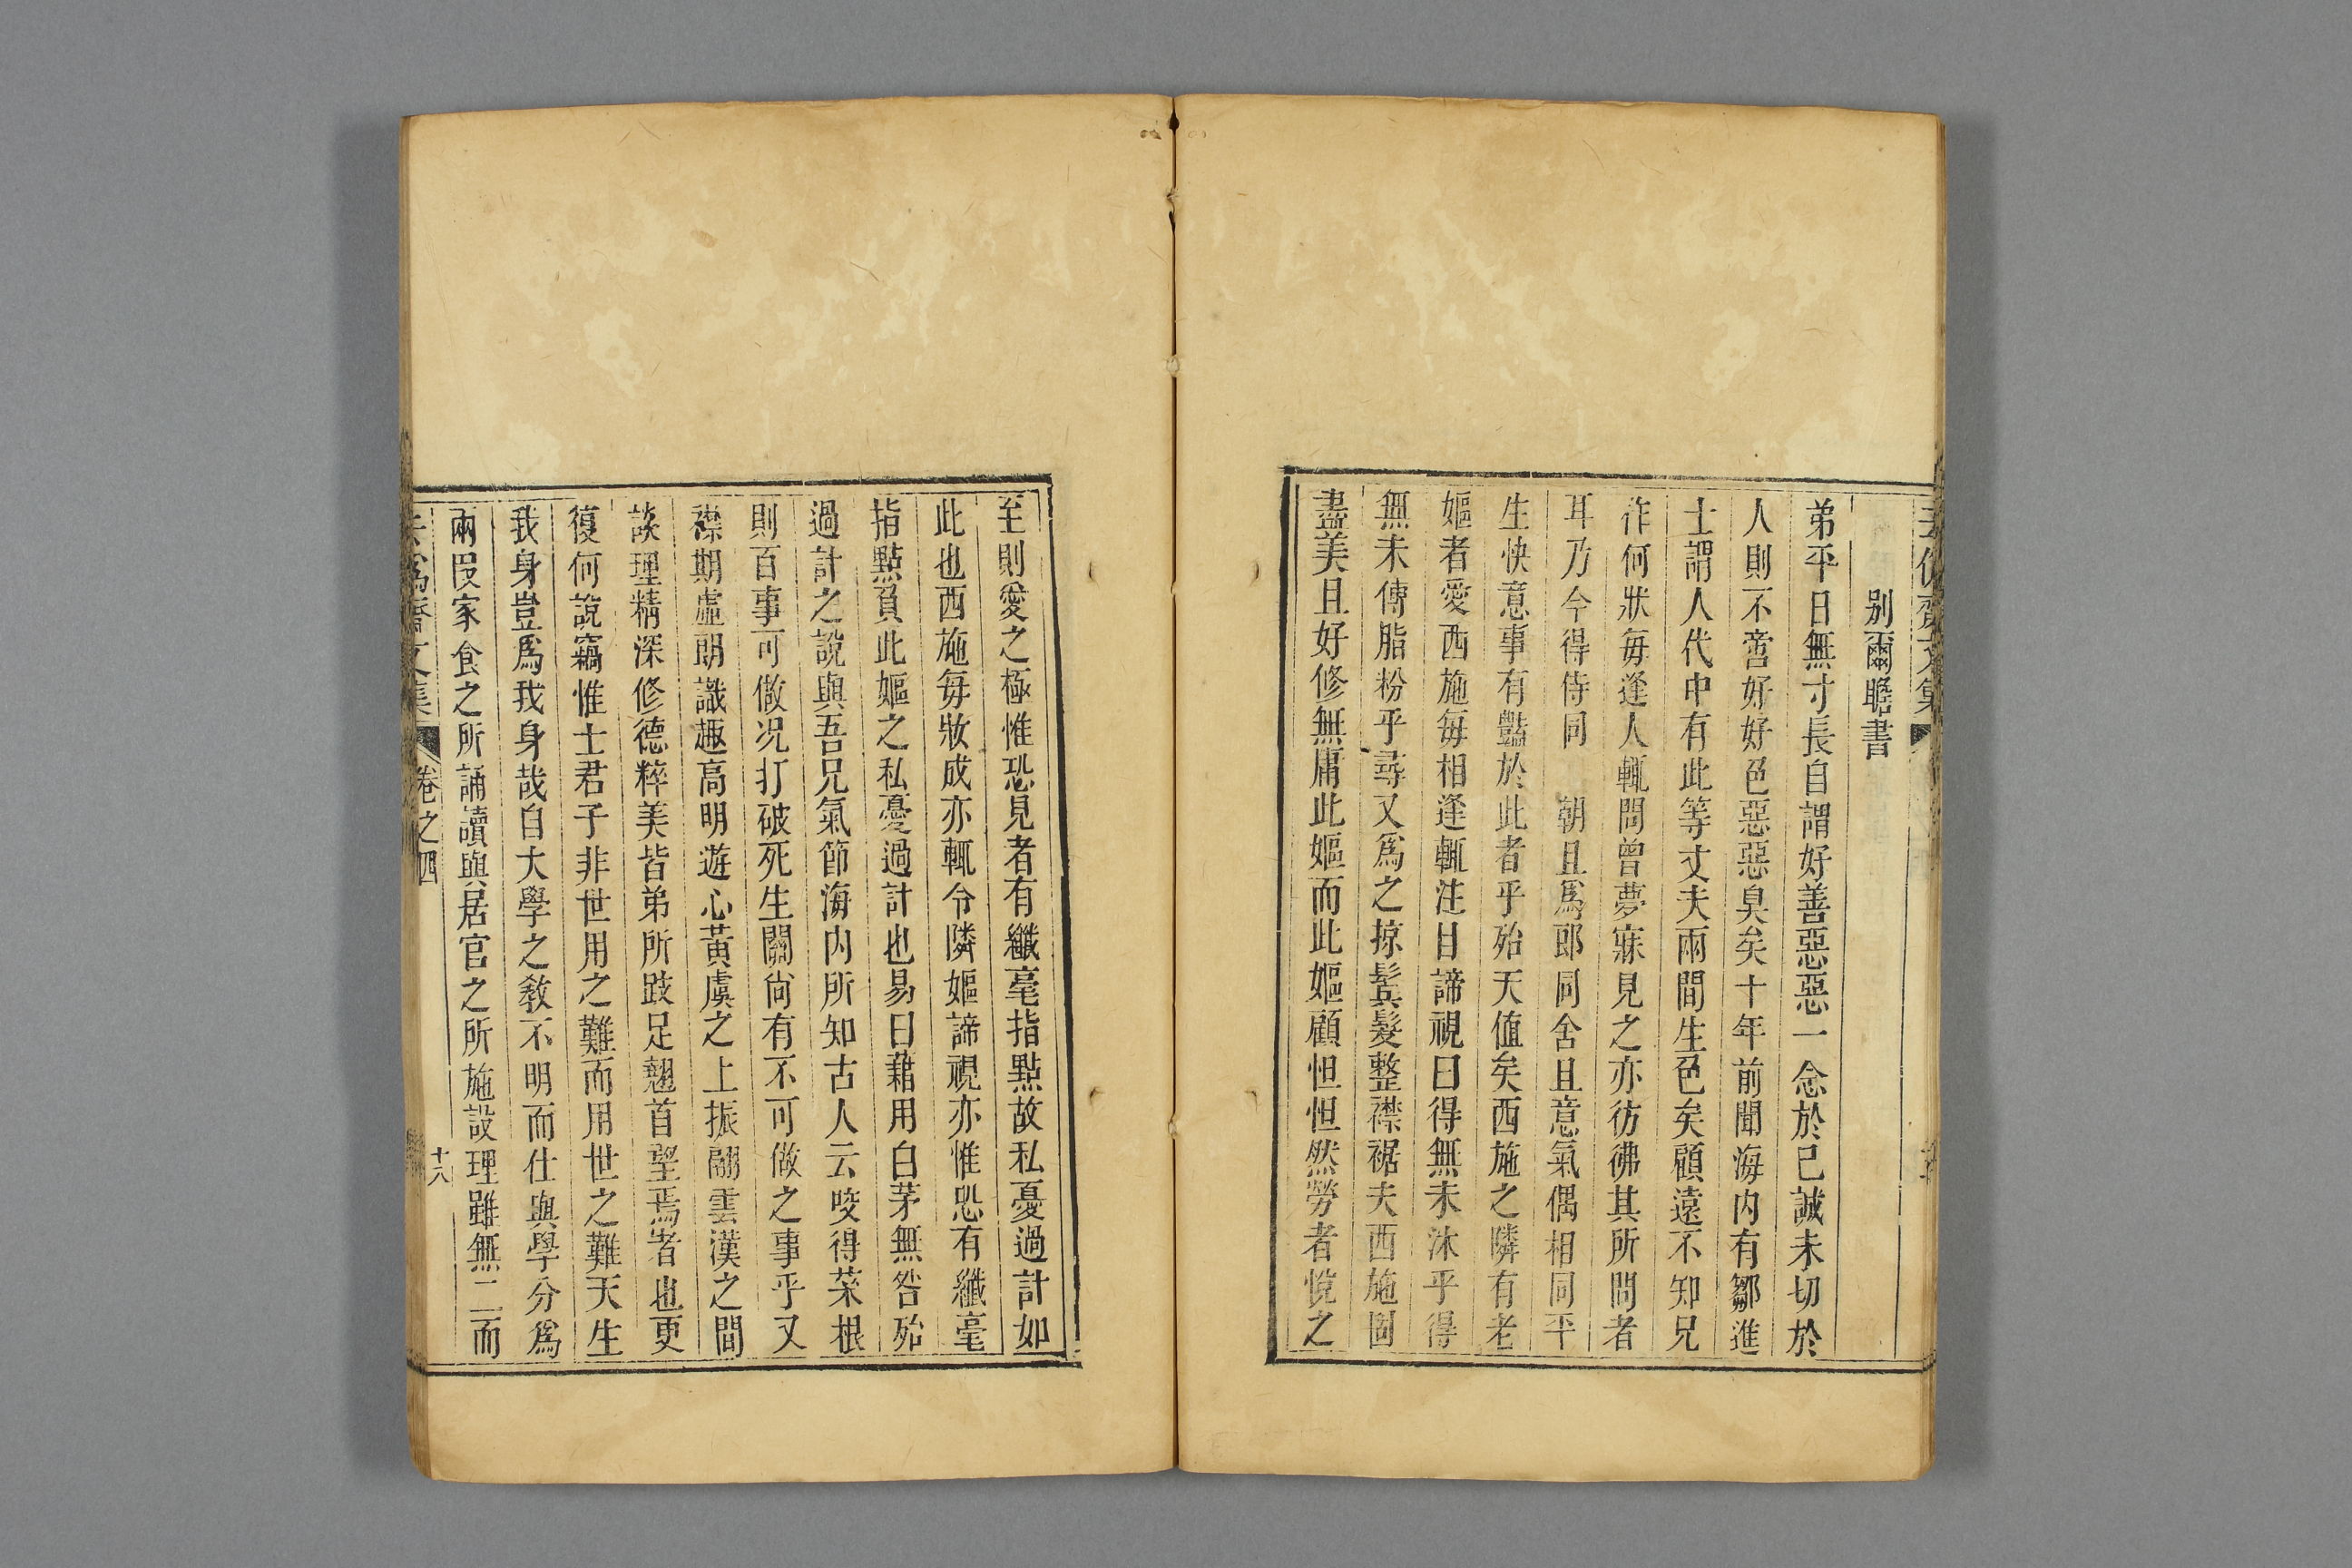 別爾瞻書
弟平日無寸長自謂好善惡惡一念於己誠未切於
人則不啻好好色惡惡臭矣十年前聞海内有鄒進
士謂人代中有此等丈夫兩間生色矣顧遠不知兄
作何狀每逢人輒問曾夢寐見之亦彷彿其所問者
耳乃今得侍同 朝且爲郎同舍且意氣偶相同平
生快意事有豔於此者乎殆天值矣西施之隣有老
嫗者愛西施每相逢輒注目諦視曰得無未沐乎得
無未傅脂粉乎尋又爲之掠鬓髮整襟裾夫西施固
盡美且好修無庸此嫗而此嫗顧怛怛然勞者悅之
至則愛之極惟恐見者有纖毫指點故私憂過計如
此也西施每妝成亦輒令隣嫗諦視亦惟恐有纖毫
指點負此嫗之私憂過計也易曰藉用白茅無咎殆
過計之說與吾兄氣節海内所知古人云咬得菜根
則百事可做况打破死生關尙有不可做之事乎又
襟期虛朗識趣高明遊心黃虞之上振翮雲漢之間
談理精深修德粹美皆弟所跂足翹首望焉者也更
復何說竊惟士君子非世用之難而用世之難天生
我身豈爲我身哉自大學之敎不明而仕與學分爲
兩段家食之所誦讀與居官之所施設理雖無二而
去僞齋文集 卷之四 十六